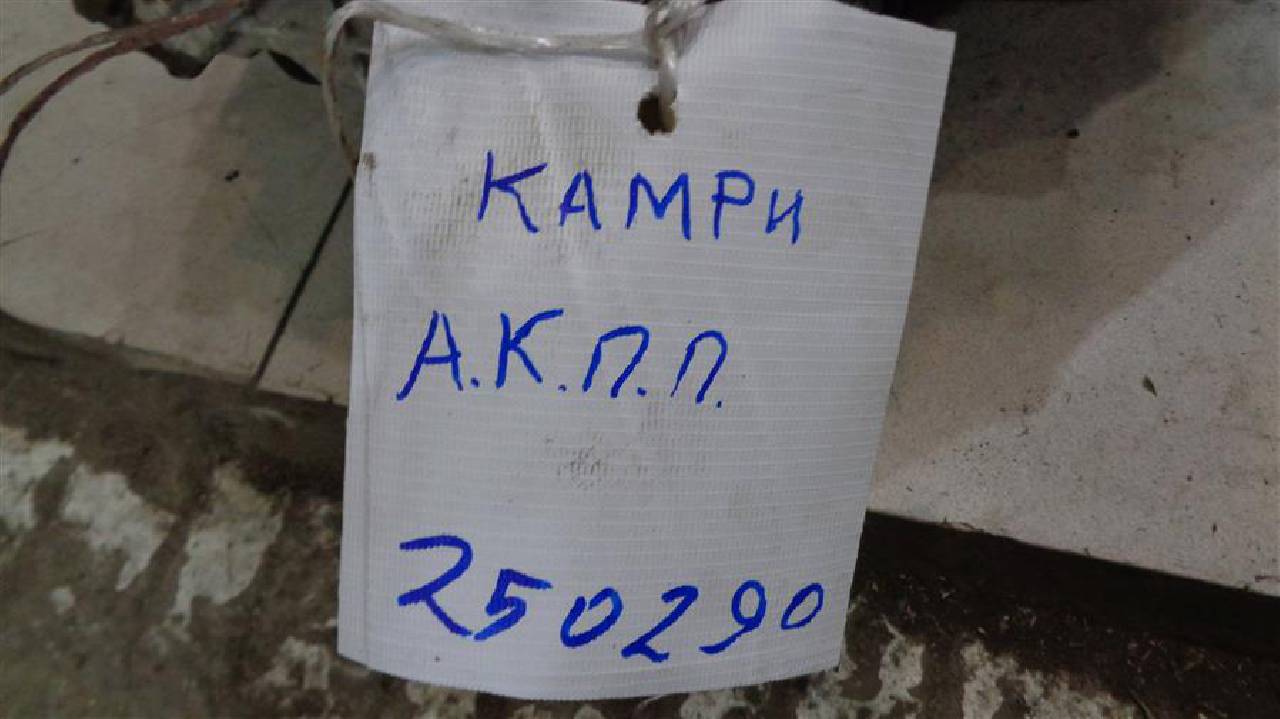 КАМРИ
А.К.П.П.
250290